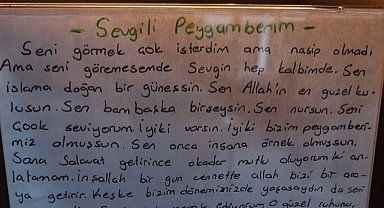 - Sevgili Peygamberim -
Seni görmek çok isterdim ama nasip olmadı
Ama seni göremesemde Sevgin hep kalbimde. Sen
islama doğan bir güneşsin. Sen Allah'ın en güzel ku-
lusun. Sen bambaşka birseysin. Sen nursun. Seni
Çook seviyorum. İyiki varsın. İyiki bizim peygamberi-
miz olmuşsun. Sen onca insana örnek olmuşsun.
Sana Salavat getirince okadar mutlu oluyorum ki an-
latamam. inşallah bir gün cennette allah bizi bir ara-
ya getirir. Keşke bizim dönemimizde yaşasaydın da seni
ediyorum O güzel ruhunu,